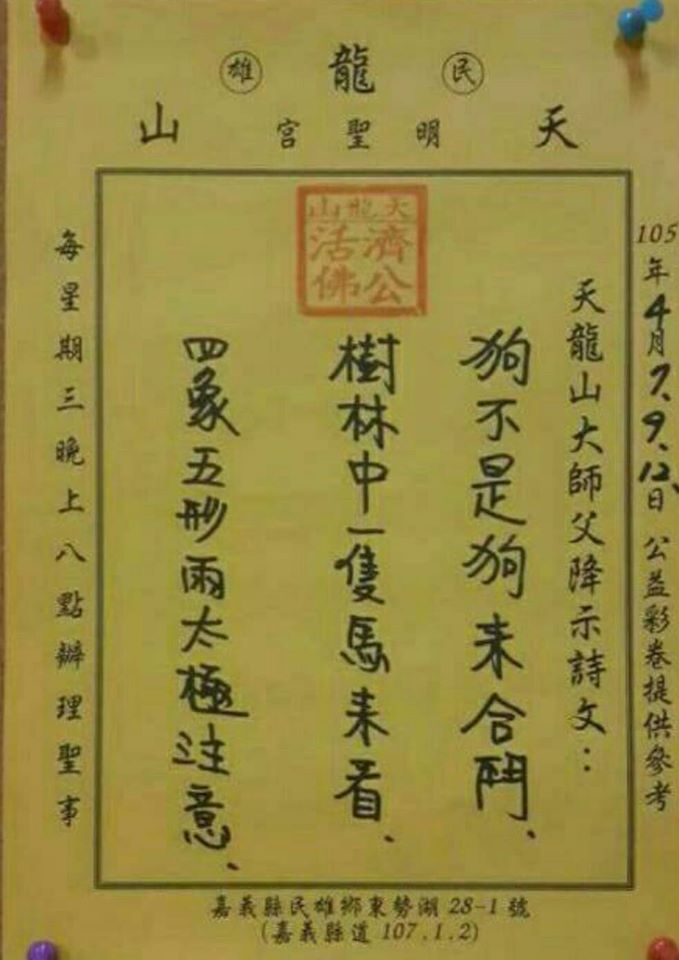 民 龍 雄
天 明聖宮 山
105年4月7.9.12日 公益彩卷提供參考
天龍山大師父降示詩文：
天龍山
濟公
活佛
狗不是狗来合鬥、
樹林中一隻馬来看、
四象五形雨太極注意、
每星期三晚上八點辦理聖事
嘉義縣民雄鄉東勢湖 28-1 號
(嘉義縣道 107.1.2)